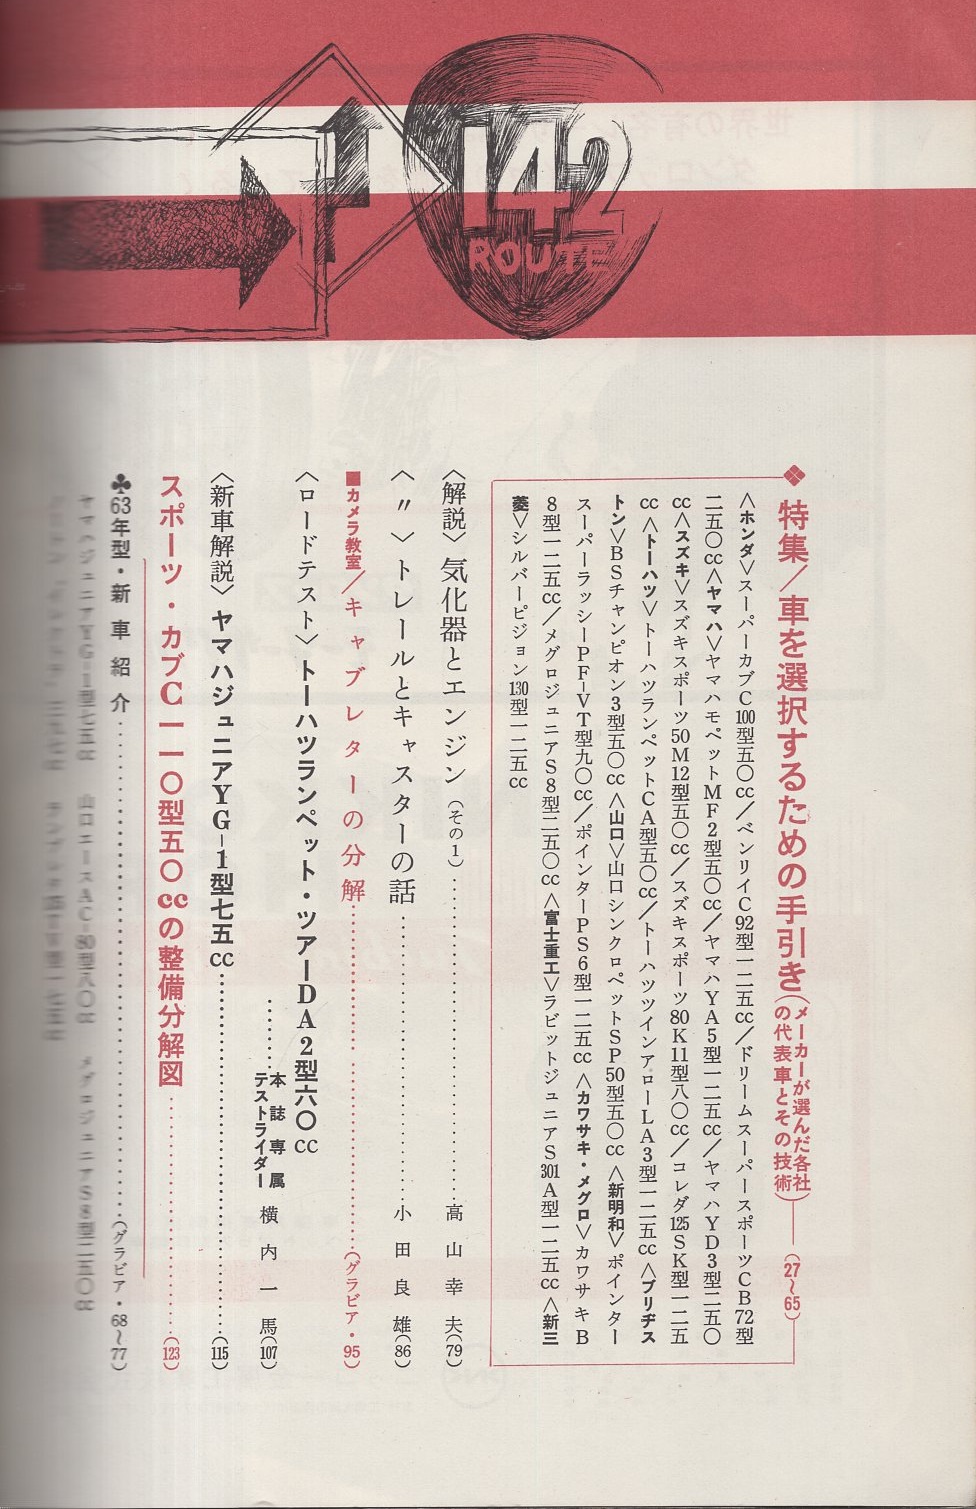 142
ROUTE
❖特集／車を選択するための手引き(メーカーが選んだ各社の代表車とその技術)――(27〜65)
〈ホンダ〉スーパーカブC100型五〇cc／ベンリイC92型一二五cc／ドリームスーパースポーツCB72型
二五〇cc〈ヤマハ〉ヤマハモペットMF2型五〇cc／ヤマハYA5型一二五cc／ヤマハYD3型二五〇
cc〈スズキ〉スズキスポーツ50M12型五〇cc／スズキスポーツ80K11型八〇cc／コレダ125SK型一二五
cc〈トーハツ〉トーハツランペットCA型五〇cc／トーハツツインアローLA3型一二五cc〈ブリヂス
トン〉BSチャンピオン3型五〇cc〈山口〉山口シンクロペットSP50型五〇cc〈新明和〉ポインター
スーパーラッシーPF-VT型九〇cc／ポインターPS6型一二五cc〈カワサキ・メグロ〉カワサキB
8型一二五cc／メグロジュニアS8型二五〇cc〈富士重工〉ラビットジュニアS301A型一二五cc〈新三
菱〉シルバーピジョン130型一二五cc
〈解説〉気化器とエンジン(その1)……高山幸夫(79)
〈〃〉トレールとキャスターの話……小田良雄(86)
■カメラ教室／キャブレターの分解……(グラビア・95)
〈ロードテスト〉トーハツランペット・ツアーDA2型六〇cc
……本誌専属テストライダー 横内一馬(107)
〈新車解説〉ヤマハジュニアYG-1型七五cc……(115)
スポーツ・カブC一一〇型五〇ccの整備分解図……(123)
♣63年型・新車紹介……(グラビア・68〜77)
ヤマハジュニアYG-1型七五cc 山口エースAC-80型八〇cc メグロジュニアS8型二五〇cc